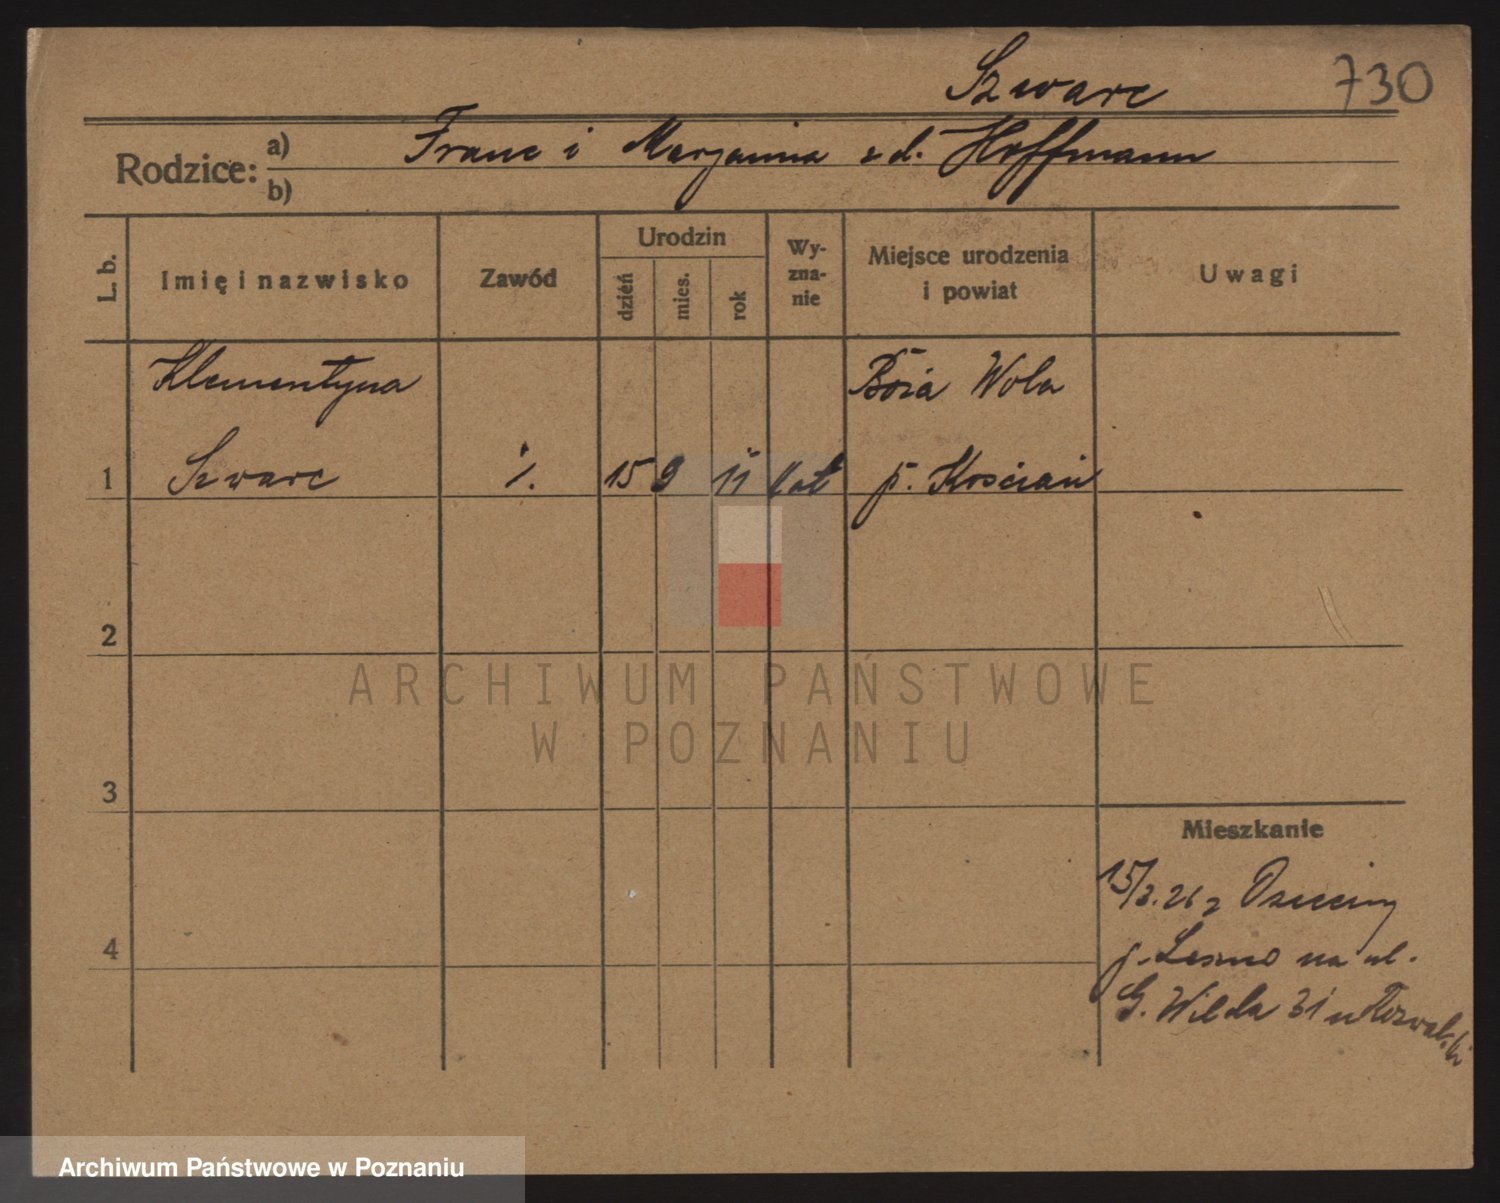 Szwarc 730
Rodzice: a) Franc i Marjanna z d. Hoffmann
b)
L. b. Imię i nazwisko Zawód Urodzin dzień mies. rok Wy-zna-nie Miejsce urodzenia i powiat Uwagi
Klementyna Boża Wola
1 Szwarc /. 15 9 11 kat p. Kościan
2
3
4
Mieszkanie
15/3.26 z
p. Leszno na ul.
G. Wilda 31 u
ARCHIWUM PAŃSTWOWE
W POZNANIU
Archiwum Państwowe w Poznaniu